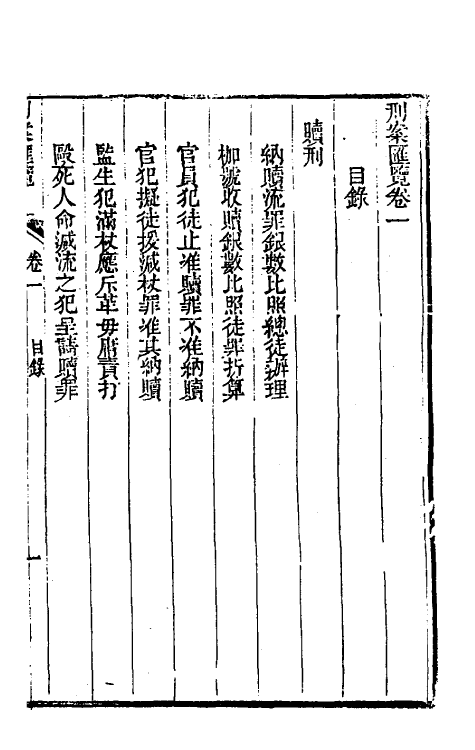 刑案匯覽卷一
目錄
贖刑
納贖流罪銀數比照總徒辦理
枷號收贖銀數比照徒罪折算
官員犯徒止准贖罪不准納贖
官犯擬徒援減杖罪准其納贖
監生犯滿杖應斥革毋庸責打
毆死人命減流之犯呈請贖罪
刑案匯覽 卷一 目錄 一